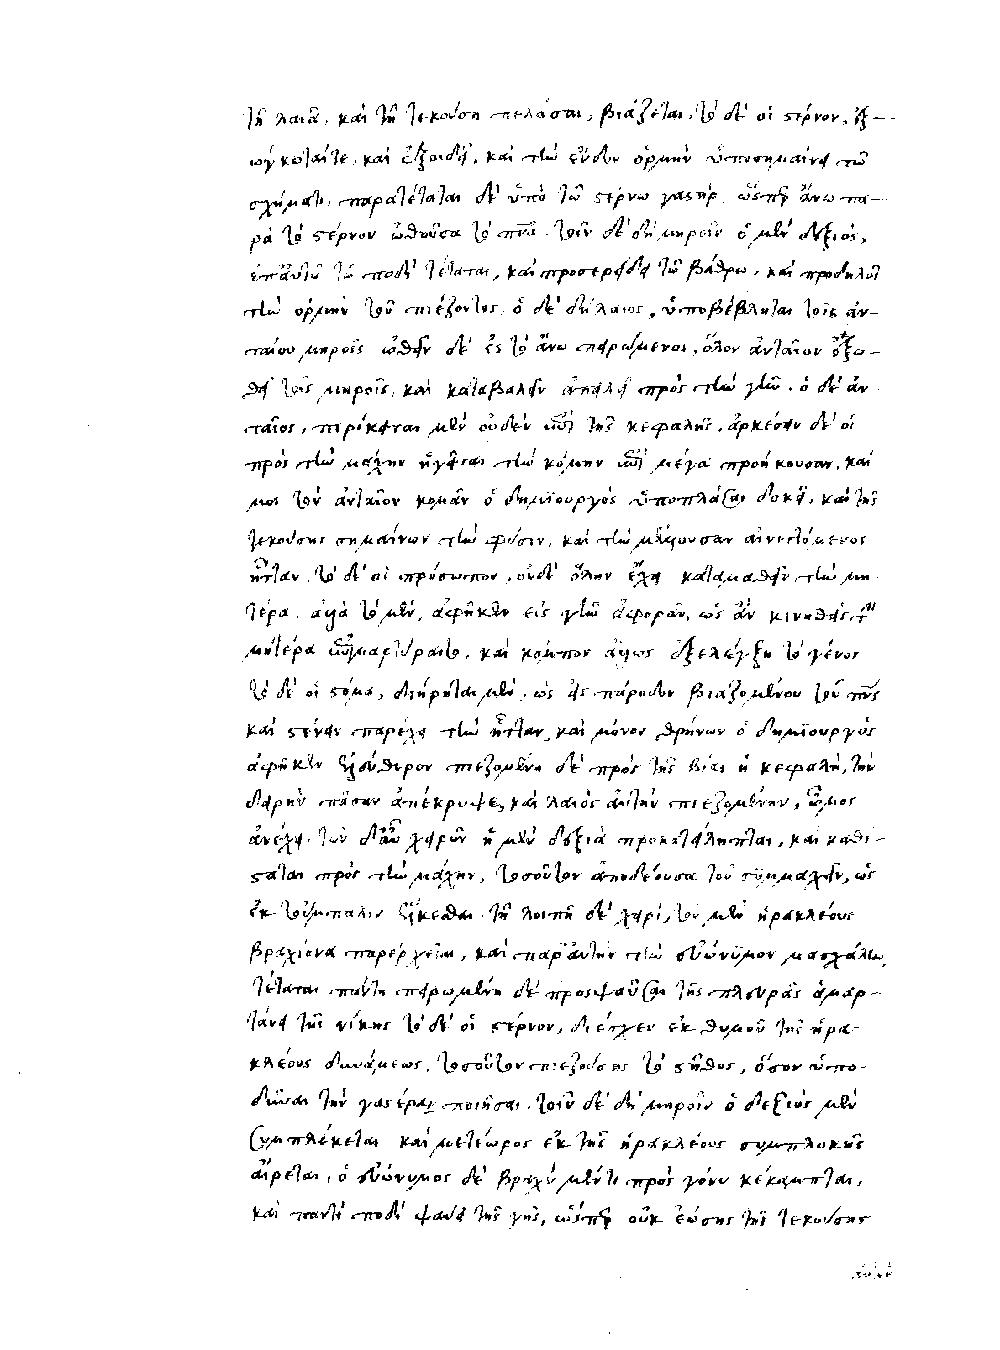 τῇ λαιᾷ, καὶ τῇ τεκούσῃ πελάσαι, βιάζεται, τὸ δέ οἱ στέρνον, ἐξ—
ωγκοταίτε, καὶ ἐξοιδεῖ, καὶ τὴν ἔνδον ὁρμὴν ὑποσημαίνει τῷ
σχήματι, παρατέταται δὲ ὑπὸ τῷ στέρνῳ γαστὴρ, ὥσπερ ἄνω πα—
ρὰ τὸ στέρνον ὠθοῦσα τὸ πνᾶ. τοῖν δὲ δὴ μηροῖν ὁ μὲν δεξιὸς,
ἐπ' αὐτῷ τῷ ποδὶ τέταται, καὶ προσερείδει τῷ βάθρῳ, καὶ προδηλοῖ
τὴν ὁρμὴν τοῦ πιέζοντος, ὁ δὲ δὴ λαιὸς, ὑποβέβληται τοῖς ἀν—
ταίου μηροῖς ὠθεῖν δὲ ἐς τὸ ἄνω πειρώμενος, ὅλον ἀνταῖον ἐξω—
θεῖ τοῖς μηροῖς, καὶ καταβαλεῖν ἀπειλεῖ πρὸς τὴν γῆν. ὁ δὲ ἀν
ταῖος, περίκειται μὲν οὐδὲν ἐπὶ τῆς κεφαλῆς, ἀρκέσειν δέ οἱ
πρὸς τὴν μάχην ἡγεῖται τὴν κόμην ἐπὶ μέγα προήκουσαν, καί
μοι τὸν ἀνταῖον κομᾶν ὁ δημιουργὸς ὑποπλάσαι δοκεῖ, καὶ τῆς
τεκούσης σημαίνων τὴν φύσιν, καὶ τὴν μέλλουσαν αἰνιττόμενος
ἧτταν. τὸ δέ οἱ πρόσωπον, οὐδὲ ὅλην ἔχει καταμαθεῖν τὴν μη
τέρα. ἀλλὰ τὸ μὲν, ἀφῆκεν εἰς γῆν ἀφορᾶν, ὡς ἂν κινηθεὶς τὴν
μητέρα ἐπιμαρτύραιτο, καὶ κόμπος ἄλλως ἐξελέγξῃ τὸ γένος
τὸ δέ οἱ στόμα, διῄρηται μὲν, ὡς εἰς πάροδον βιαζομένου τοῦ πνς
καὶ στένειν παρέχει τὴν ἧτταν, καὶ μόνον θρήνων ὁ δημιουργὸς
ἀφῆκεν ἐλεύθερον πιεζομένη δὲ πρὸς τῆς βίας ἡ κεφαλὴ, τὴν
δειρὴν πᾶσαν ἀπέκρυψε, καὶ λαιὸς αὐτὴν πιεζομένην, ὦμος
ἀνέχει. τῶν δ' αὖ χειρῶν ἡ μὲν δεξιὰ προκατείληπται, καὶ καθί—
σταται πρὸς τὴν μάχην, τοσοῦτον ἀποδέουσα τοῦ συμμαχεῖν, ὡς
ἐκ τοὔμπαλιν ἕλκεσθαι. τῇ λοιπῇ δὲ χειρὶ, τὸν μὲν ἡρακλέους
βραχίονα παρέρχεται, καὶ παρ' αὐτὴν τὴν εὐώνυμον μασχάλην
τέταται πάντῃ πειρωμένη δὲ προσψαῦσαι τῆς πλευρᾶς ἁμαρ—
τάνει τῆς νίκης τὸ δέ οἱ στέρνον, διέσχεν ἐκ θυμοῦ τῆς ἡρα—
κλέους δυνάμεως, τοσοῦτον πιεζούσης τὸ στῆθος, ὅσον ὑπο—
δῦναι τὴν γαστέρα, ποιῆσαι. τοῖν δὲ δὴ μηροῖν ὁ δεξιὸς μὲν
συμπλέκεται καὶ μετέωρος ἐκ τῆς ἡρακλέους συμπλοκῆς
αἴρεται, ὁ εὐώνυμος δὲ βραχὺ μέν τι πρὸς γόνυ κέκαμπται,
καὶ παντὶ ποδὶ ψαύει τῆς γῆς, ὥσπερ οὐκ ἐώσης τῆς τεκούσης